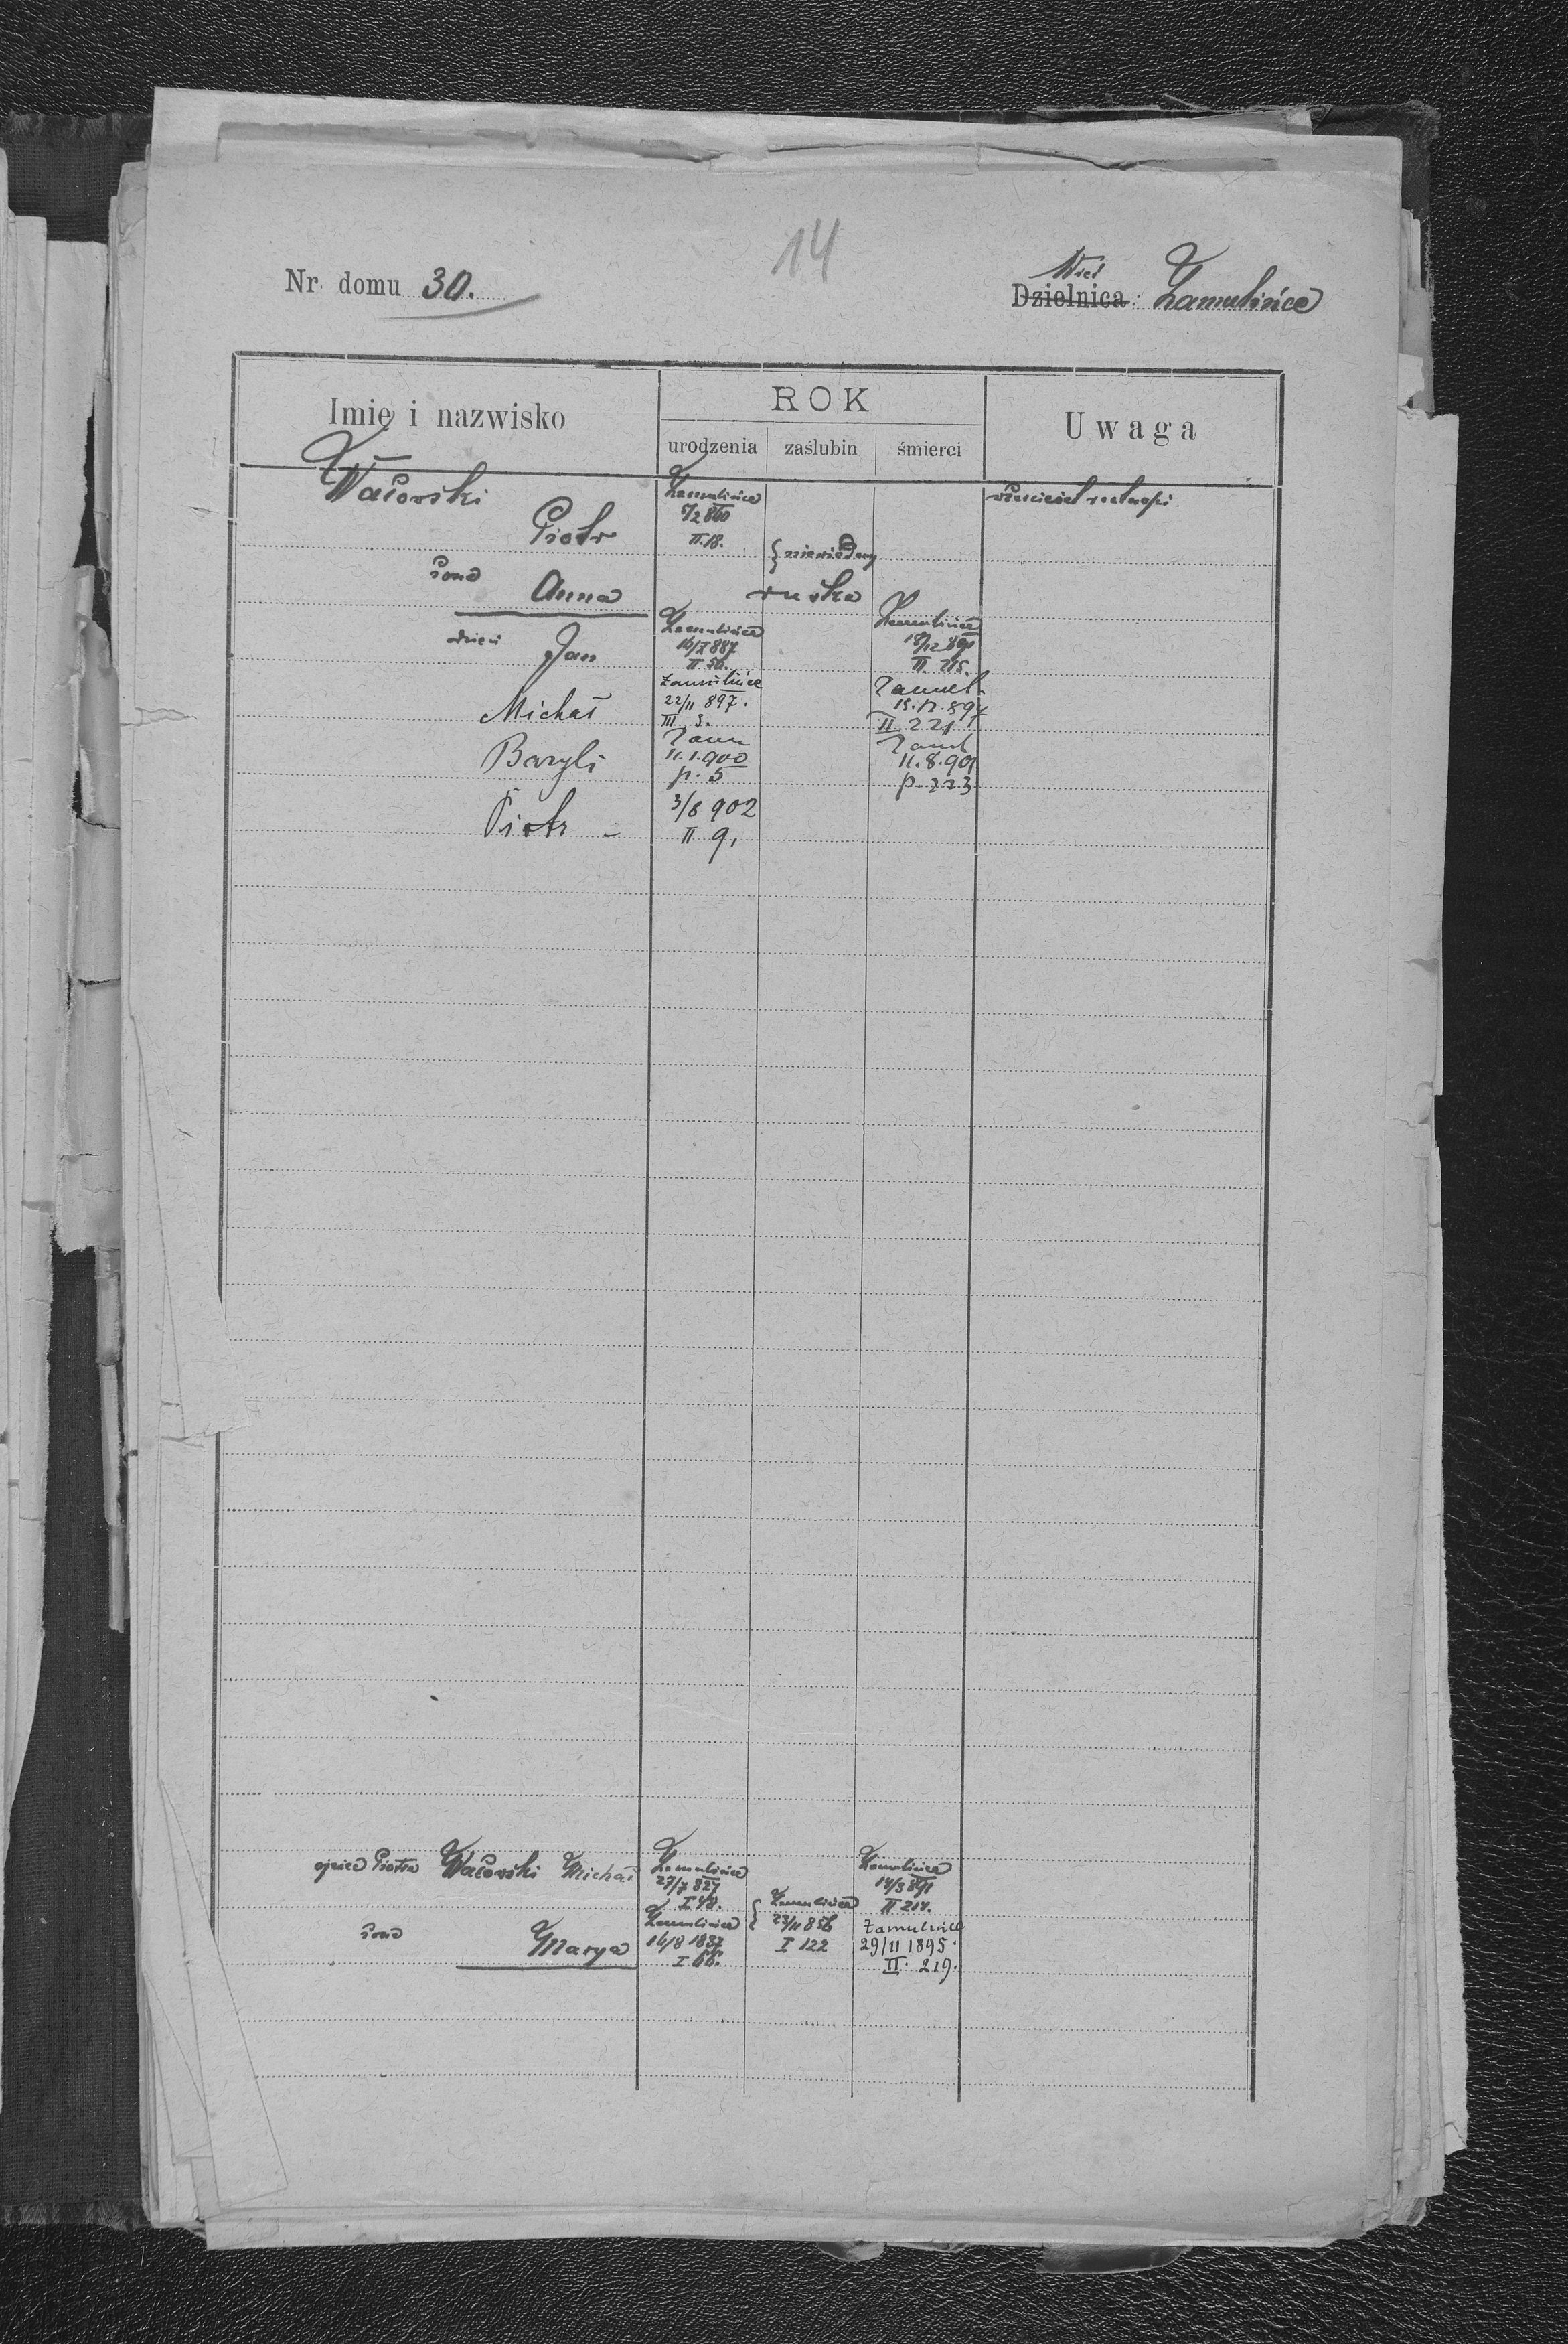 14
Nr domu 30.
Wieś
Dzielnica: Zamulińce
Imię i nazwisko
ROK
urodzenia zaślubin śmierci
Uwaga
Wałowski
Piotr
Zamulińce
5/2 860
II. 18.
{ niewiedzą
żona Anna
ruska
dzieci Jan
Zamulińce
16/I 887
II 56.
Zamulińce
18/12 891
II. 215.
Michał
Zamulińce
22/11 897.
III 3.
Zamul.
15.12.897
II. 221
Bazyli
Zam
11.1.900
p. 5
Zamul
11.8.901
p. 223
Piotr -
3/8 902
II 9,
ojciec Piotra Wałowski Michał
Zamulińce
27/7 827
I 48.
Zamulińce
14/3 891
II 214.
żona Marya
Zamulińce
16/8 1837
I 66.
{ Zamulińce
23/11 856
I 122
Zamulińce
29/11 1895.
II. 219.